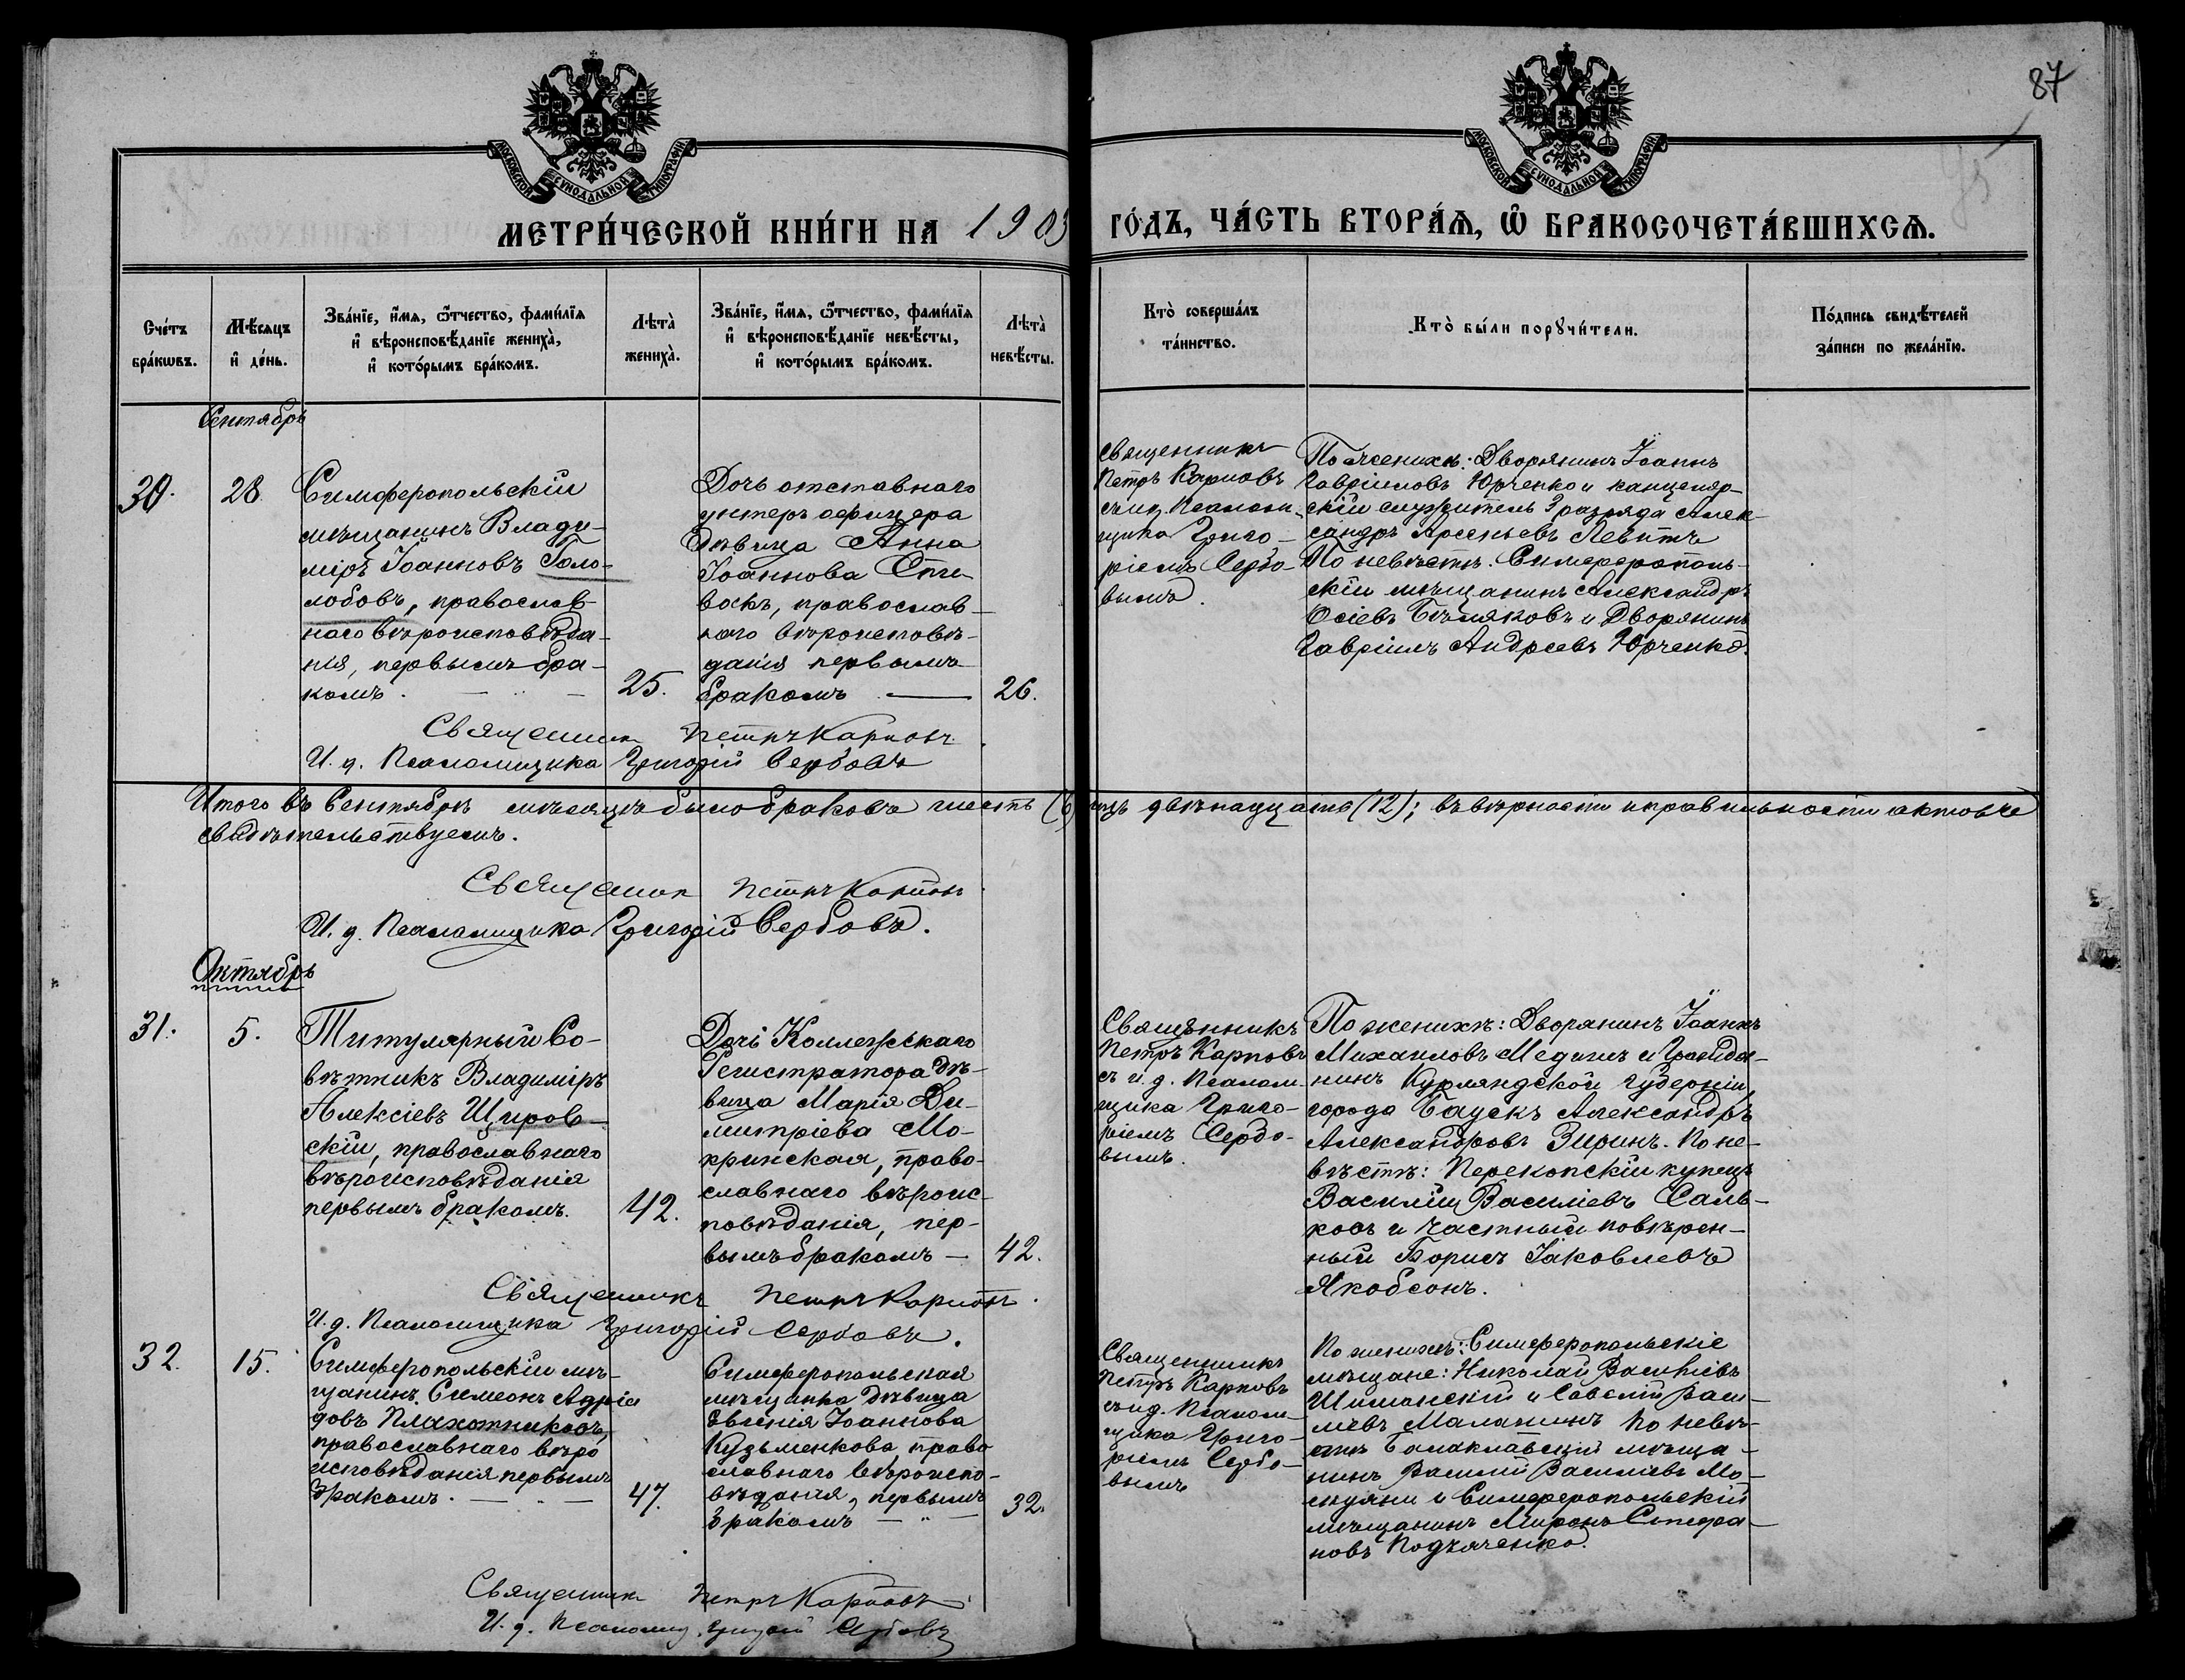 87
МОСКОВСКОЙ СУНОДАЛЬНОЙ ТИПОГРАФІИ
МОСКОВСКОЙ СУНОДАЛЬНОЙ ТИПОГРАФІИ
МЕТРИ́ЧЕСКОЙ КНИ́ГИ НА 1903 ГО́ДЪ, ЧА́СТЬ ВТОРА́Ѧ, Ѡ҆ БРАКОСОЧЕТА́ВШИХСѦ.
Сче́тъ
бра́кѡвъ.
Мѣ́сяцъ
и҆ де́нь.
Зва́нїе, и҆́мѧ, ѻ҆́тчество, фами́лїѧ
и҆ вѣроисповѣ́данїе жениха̀,
и҆ кото́рымъ бра́комъ.
Лѣта̀
жениха̀.
Зва́нїе, и҆́мѧ, ѻ҆́тчество, фами́лїѧ
и҆ вѣроисповѣ́данїе невѣ́сты,
и҆ кото́рымъ бра́комъ.
Лѣта̀
невѣ́сты.
Кто̀ соверша́лъ
та́инство.
Кто̀ бы́ли порꙋчи́тели.
По́дпись свидѣ́телей
за́писи по жела́нїю.
Сентябрь
30.
28.
Симферопольскій
мѣщанинъ Влади-
міръ Іоанновъ Голо-
лобовъ, православ-
наго вѣроисповѣда-
нія, первымъ бра-
комъ.
25.
Дочь отставнаго
унтеръ офицера
дѣвица Анна
Іоаннова
православ-
наго вѣроисповѣ-
данія первымъ
бракомъ
26.
Священникъ
Петръ Карповъ
съ и.д. Псалом-
щика Григо-
ріемъ Сербо-
вымъ.
По женихѣ: Дворянинъ Іоаннъ
Гавріиловъ Юрченко и канцеляр-
скій служитель 3 разряда Алек-
сандръ Арсеньевъ Левитъ
По невѣстѣ: Симферополь-
скій мѣщанинъ Александръ
Осіевъ Бѣляковъ и Дворянинъ
Гавріилъ Андреевъ Юрченко.
Священникъ Петръ Карповъ.
И. д. Псаломщика Григорій Сербовъ
Итого въ Сентябрѣ мѣсяцѣ было браковъ шесть (6) двѣнадцать (12); въ вѣрности и правильности актовъ
свидѣтельствуемъ.
Священник Петръ Карповъ
И. д. Псаломщика Григорій Сербовъ.
Октябрь
31.
5.
Титулярный Со-
вѣтникъ Владиміръ
Алексіевъ Щиров-
скій, православнаго
вѣроисповѣданія
первымъ бракомъ.
42.
Дочь Коллежскаго
Регистратора дѣ-
вица Марія Ди-
митріева Мо-
кринская, право-
славнаго вѣроис-
повѣданія, пер-
вымъ бракомъ
42.
Священникъ
Петръ Карповъ
съ и. д. Псалом-
щика Григо-
ріемъ Сербо-
вымъ.
По женихѣ: Дворянинъ Іоаннъ
Михаиловъ Медигъ и Гражда-
нинъ Курляндской губерніи,
города Баускъ Александръ
Александровъ Зиринъ. По не-
вѣстѣ: Перекопскій купецъ
Василій Василіевъ Саль-
ковъ и частный повѣрен-
ный Борисъ Іаковлевъ
Якобсонъ.
Священникъ Петръ Карповъ.
И. д. Псаломщика Григорій Сербовъ.
32.
15.
Симферопольскій мѣ-
щанинъ Симеонъ Адріа
довъ Плахотниковъ,
православнаго вѣро
исповѣданія первымъ
бракомъ.
47.
Симферопольская
мѣщанка дѣвица
Евгенія Іоаннова
Кузьменкова право
славнаго вѣроиспо-
вѣданія, первымъ
бракомъ
32.
Священникъ
Петръ Карповъ
съ и.д. Псалом-
щика Григо-
ріемъ Сербо-
вымъ
По женихѣ: Симферопольскіе
мѣщане: Николай Василіевъ
Шиманскій и Савелій Васи-
ліевъ Маланинъ По невѣ-
стѣ Балаклавскій мѣща-
нинъ Василій Василіевъ
и Симферопольскій
мѣщанинъ Миронъ Стефа-
новъ
Священникъ Петръ Карповъ
И. д. Псаломщ. Григорій Сербовъ